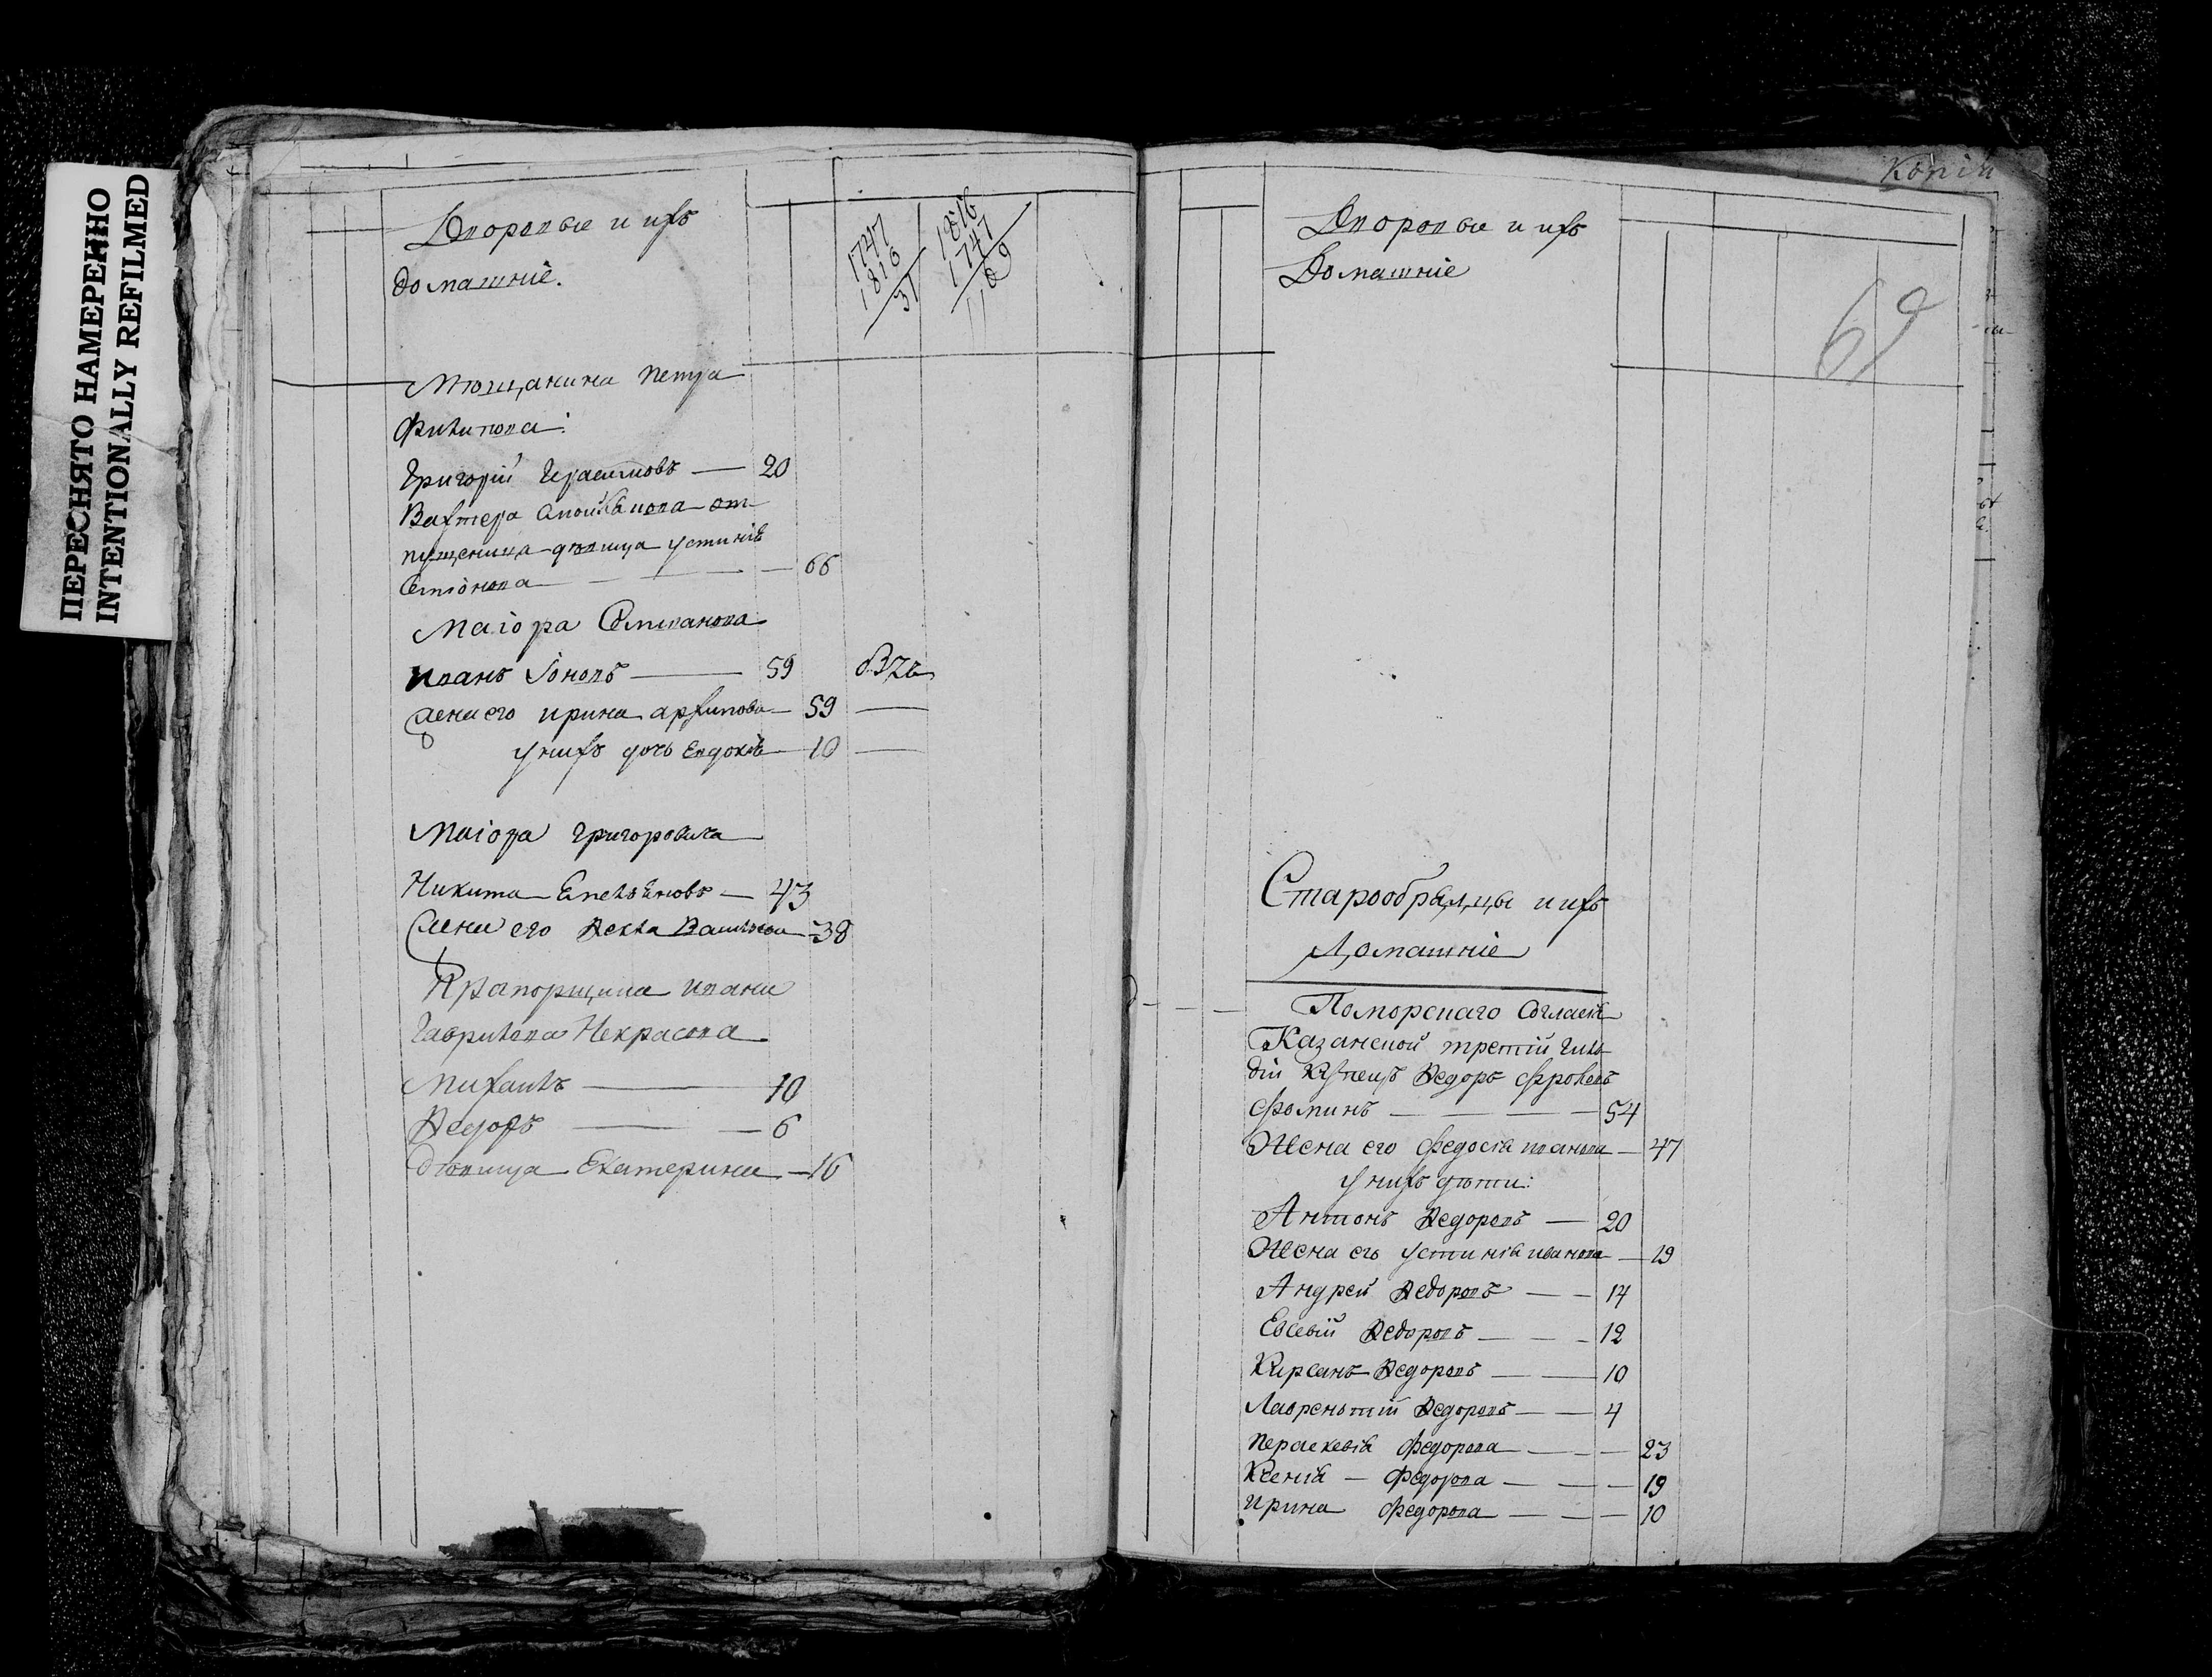 ПЕРЕСНЯТО НАМЕРЕННО
INTENTIONALLY REFILMED
Дворовые и ихъ
домашніе.
1747
1816
31
1816
1747
69
Мѣщанина Петра
Филипова:
Григорій Герасимовъ — 20
Вахтера от-
пущенница девица Устинія
66
Маіора Степанова
Иванъ Іоновъ — 59
Жена его Ирина Архипова — 59 —
у нихъ дочь Евдокія — 10 —
Маіора Григоровича
Никита Емельяновъ — 43
Жена его Ѳекла Васильева — 38
Прапорщика Ивана
Гаврилова Некрасова
Михаилъ — 10
Ѳедоръ — 6
Дѣвица Екатерина — 16
Копія
Дворовые и ихъ
Домашніе
69
Старообрядцы и ихъ
Домашніе
Поморскаго Согласія
Казанской третій гиль
діи купецъ Ѳедоръ Фроловъ
Фоминъ — — — — 54
Жена его Федосія Иванова — 47
у нихъ дѣти:
Антонъ Ѳедоровъ — 20
Жена его Устинія Иванова — 19
Андрей Ѳедоровъ — — 14
Евсевій Ѳедоровъ — — — 12
Кирсанъ Ѳедоровъ — — 10
Лаврентій Ѳедоровъ — — 4
Параскевія Федорова — — — 23
Ксенія — Федорова — — — 19
Ирина Федорова — — — 10